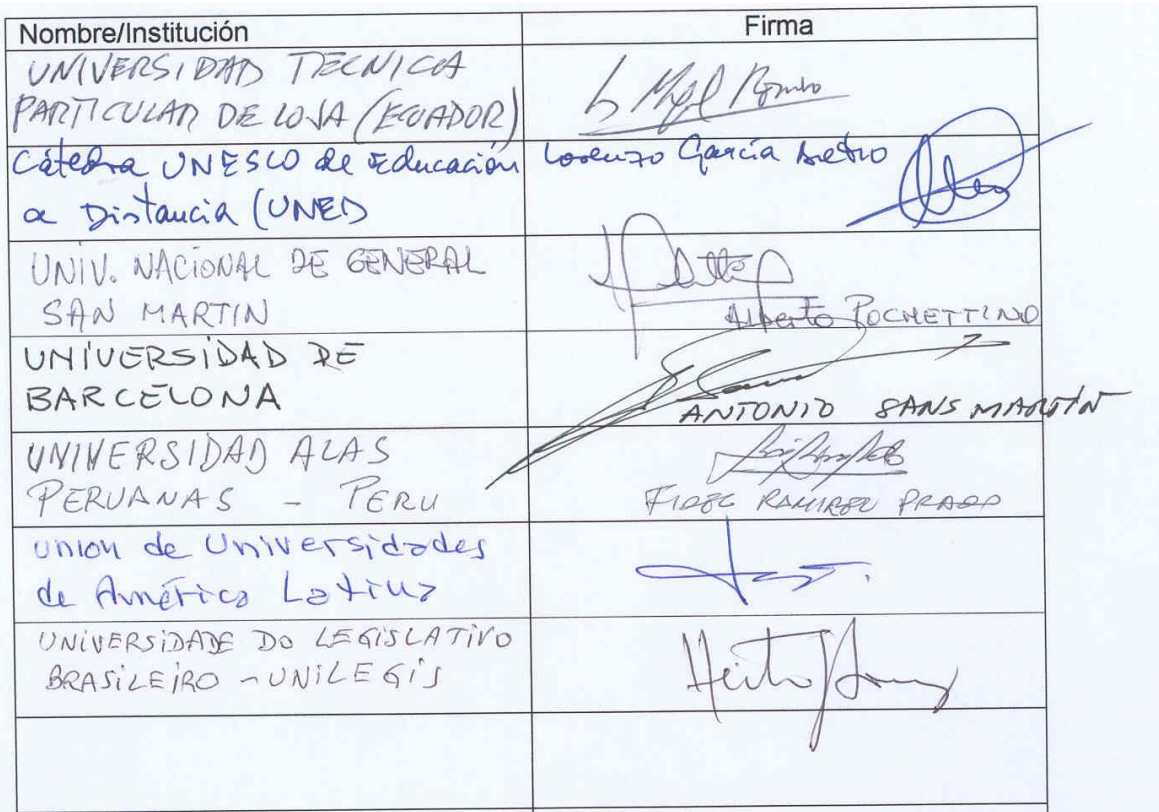 Nombre/Institución
Firma
UNIVERSIDAD TECNICA
PARTICULAR DE LOJA (ECUADOR)
Cátedra UNESCO de Educación
a Distancia (UNED
Lorenzo García Aretio
UNIV. NACIONAL DE GENERAL
SAN MARTIN
Alberto POCHETTINO
UNIVERSIDAD DE
BARCELONA
ANTONIO SANS MARTÍN
UNIVERSIDAD ALAS
PERUANAS - PERU
FIDEL RAMIREZ PRADO
Union de Universidades
de América Latina
UNIVERSIDADE DO LEGISLATIVO
BRASILEIRO - UNILEGIS